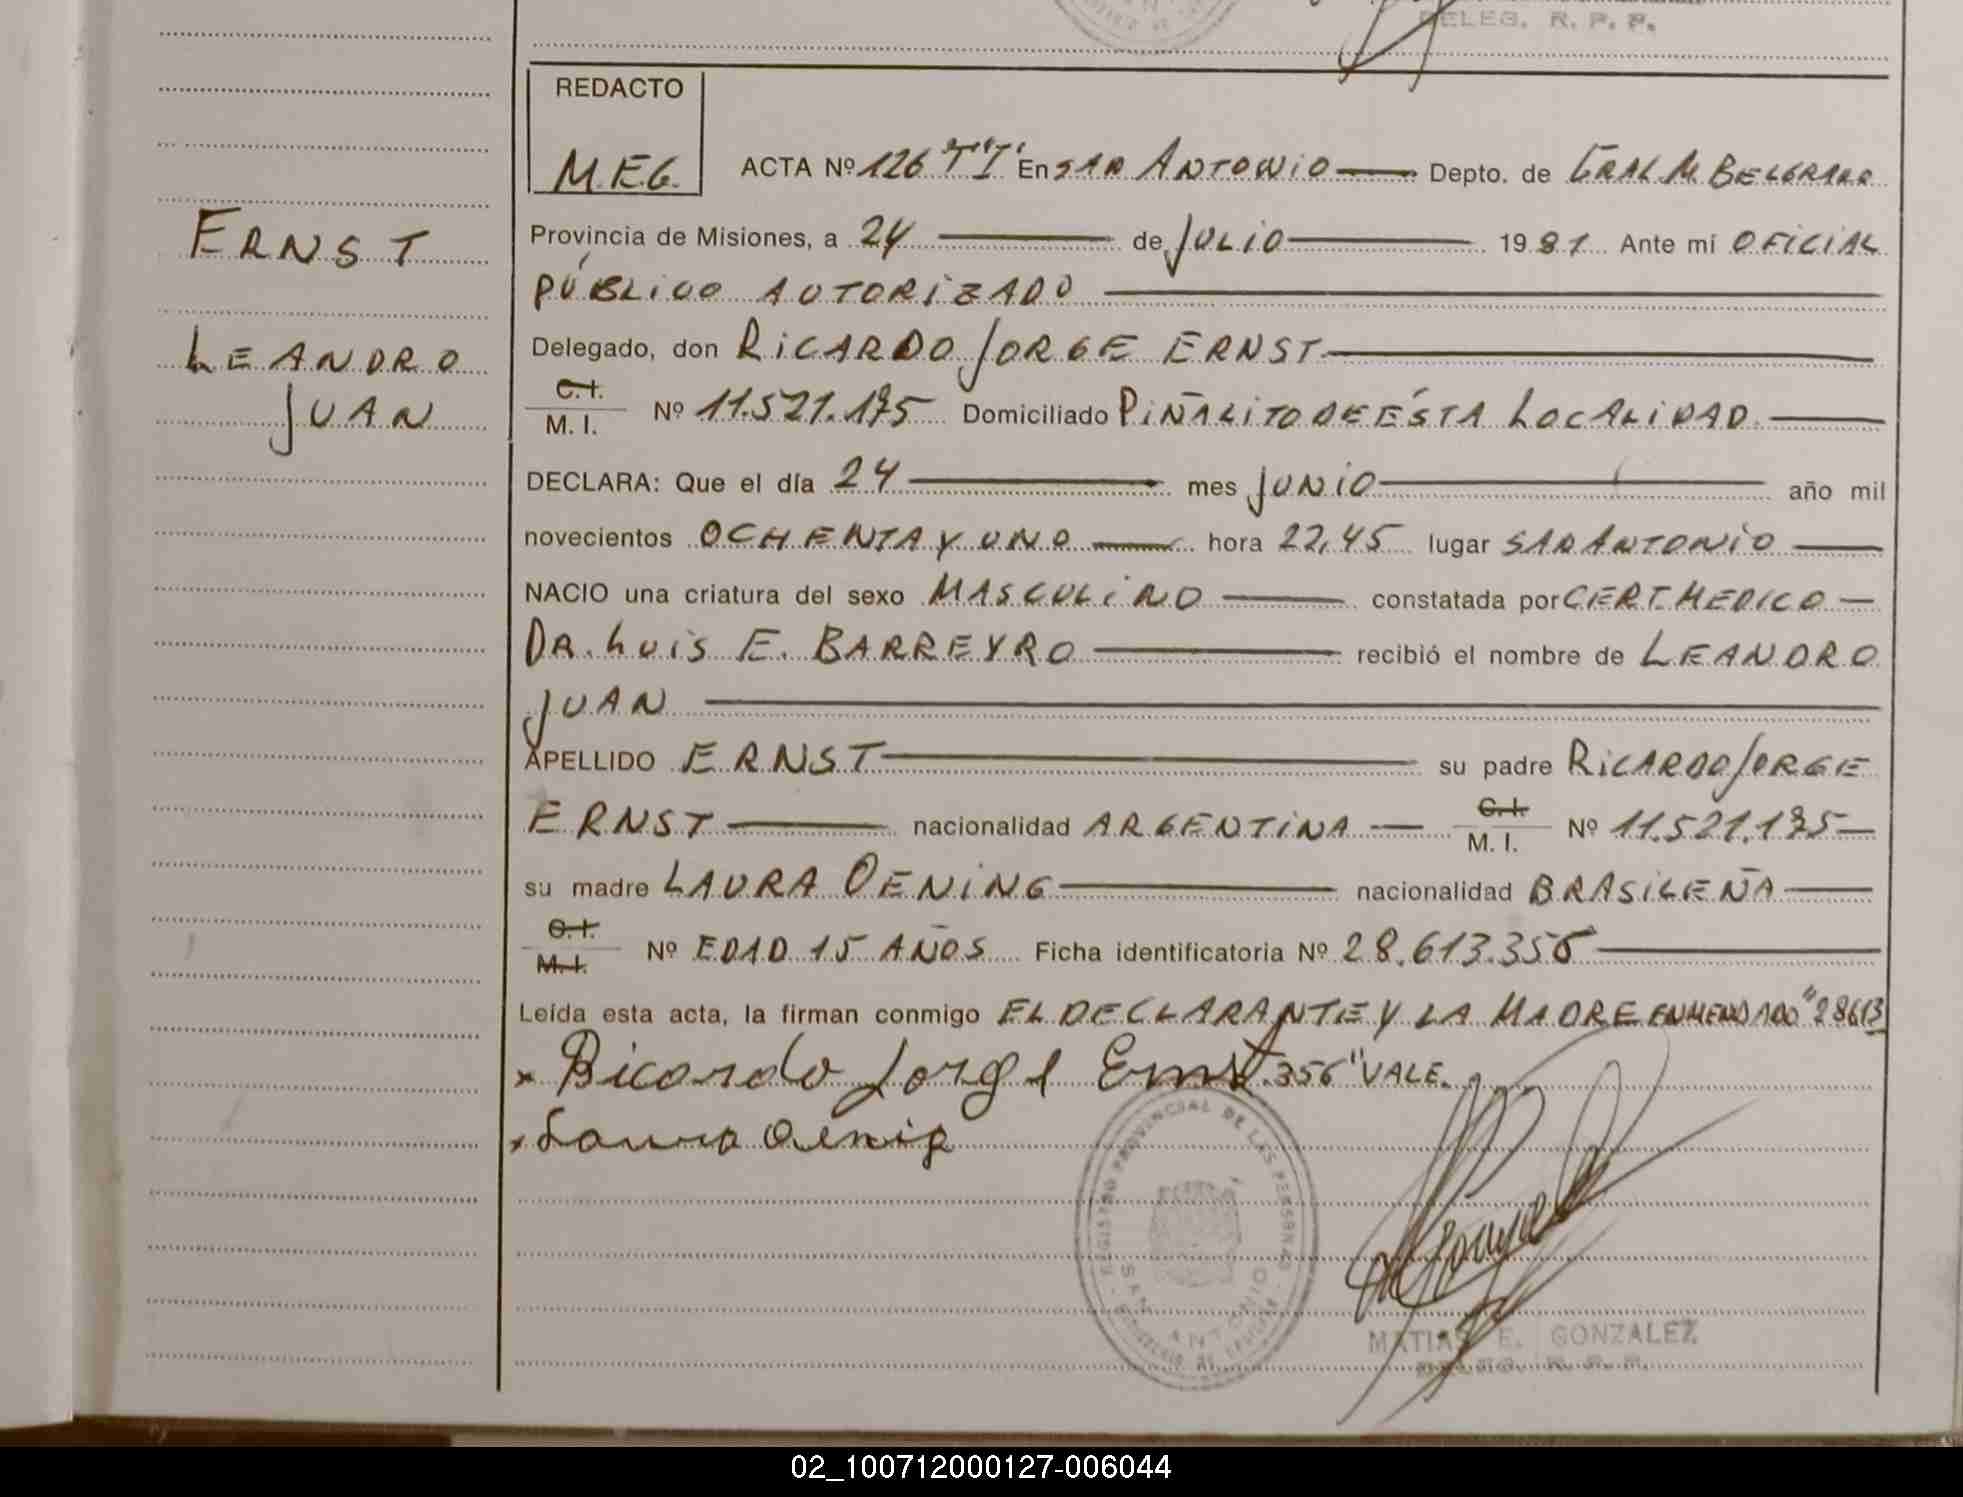 DELEG. R. P. P.
REDACTO
M.E.G.
ACTA Nº 126 "T I" En SAN ANTONIO Depto. de GRAL M. BELGRANO
Provincia de Misiones, a 24 de JULIO 1981 Ante mí OFICIAL
PÚBLICO AUTORIZADO
Delegado, don RICARDO JORGE ERNST
C.I.
M. I. Nº 11.521.175 Domiciliado PIÑALITO DE ÉSTA LOCALIDAD
DECLARA: Que el día 24 mes JUNIO año mil
novecientos OCHENTA Y UNO hora 22,45 lugar SAN ANTONIO
NACIO una criatura del sexo MASCULINO constatada por CERT. MEDICO
DR. LUIS E. BARREYRO recibió el nombre de LEANDRO
JUAN
APELLIDO ERNST su padre RICARDO JORGE
ERNST nacionalidad ARGENTINA C.I. M. I. Nº 11.521.175
su madre LAURA OENING nacionalidad BRASILEÑA
C.I.
M.I. Nº EDAD 15 AÑOS Ficha identificatoria Nº 28.613.356
Leída esta acta, la firman conmigo EL DECLARANTE Y LA MADRE ENMENDADO "28613
x Ricardo Jorge Ernst .356" VALE.
x Laura Oening
ERNST
LEANDRO
JUAN
REGISTRO PROVINCIAL DE LAS PERSONAS
SAN ANTONIO
MATIAS E. GONZALEZ
DELEG. R. P. P.
02_100712000127-006044